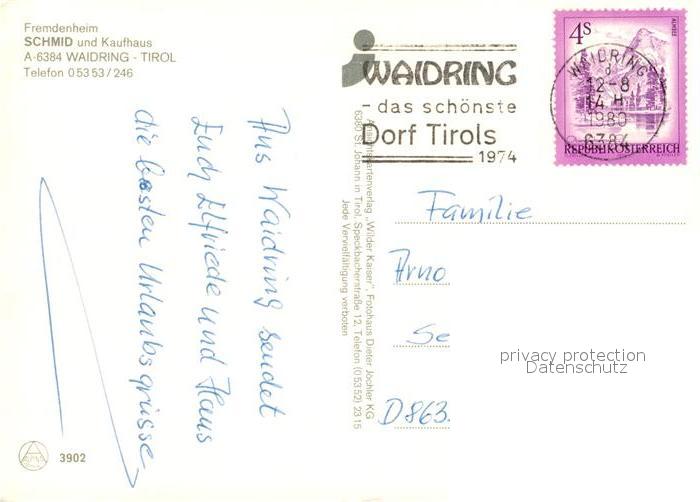 Fremdenheim
SCHMID und Kaufhaus
A-6384 WAIDRING - TIROL
Telefon 0 53 53 / 246
Aus Waidring sendet
Euch Elfriede und Haus
die besten Urlaubsgrüsse
3902
Ansichtskartenverlag „Wilder Kaiser", Fotohaus Dieter Jöchler KG
6380 St. Johann in Tirol, Speckbacherstraße 12, Telefon (0 53 52) 23 15
Jede Vervielfältigung verboten
WAIDRING
- das schönste
Dorf Tirols
1974
4S
ALMSEE
REPUBLIK ÖSTERREICH
WAIDRING
12-8
14 H
1980
6384
Familie
Arno
Se
D863.
privacy protection
Datenschutz